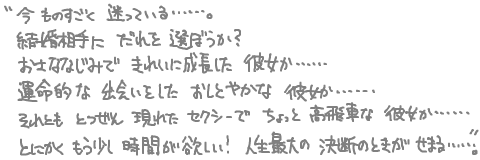 “今ものすごく迷っている……。
結婚相手にだれを選ぼうか?
おさななじみで きれいに成長した 彼女か……
運命的な 出会いをした おしとやかな 彼女か……
それとも とつぜん 現れた セクシーで ちょっと 高飛車な 彼女か……
とにかく もう少し 時間が欲しい! 人生最大の 決断のときが せまる……”